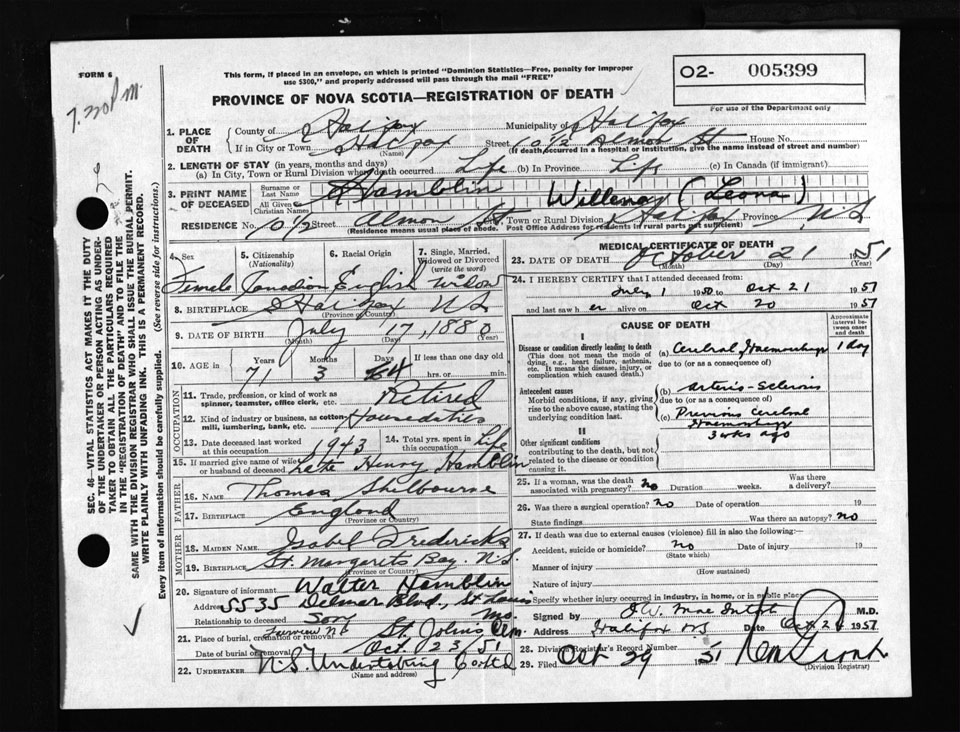 FORM 6
7.30 P.M.
This form, if placed in an envelope, on which is printed "Dominion Statistics—Free, penalty for improper
use $300," and properly addressed will pass through the mail "FREE"
O2- 005399
For use of the Department only
PROVINCE OF NOVA SCOTIA—REGISTRATION OF DEATH
SEC. 46—VITAL STATISTICS ACT MAKES IT THE DUTY
OF THE UNDERTAKER OR PERSON ACTING AS UNDER-
TAKER TO OBTAIN ALL THE PARTICULARS REQUIRED
IN THE "REGISTRATION OF DEATH" AND TO FILE THE
SAME WITH THE DIVISION REGISTRAR WHO SHALL ISSUE THE BURIAL PERMIT.
WRITE PLAINLY WITH UNFADING INK. THIS IS A PERMANENT RECORD.
Every item of information should be carefully supplied. (See reverse side for instructions.)
1. PLACE OF DEATH County of Halifax Municipality of Halifax
If in City or Town Halifax (Name) Street 10 1/2 Almon St House No.
(If death occurred in a hospital or institution, give the name instead of street and number)
2. LENGTH OF STAY (in years, months and days)
(a) In City, Town or Rural Division where death occurred Life (b) In Province Life (c) In Canada (if immigrant)
3. PRINT NAME OF DECEASED Surname or Last Name Hamblin
All Given Christian Names Willena (Leona)
RESIDENCE No. 10 1/2 Street Almon St, Town or Rural Division Halifax Province N.S
(Residence means usual place of abode. Post Office Address for residents in rural parts not sufficient)
4. Sex Female
5. Citizenship (Nationality) Canadian
6. Racial Origin English
7. Single, Married, Widowed or Divorced (write the word) Widow
8. BIRTHPLACE Halifax NS (Province or Country)
9. DATE OF BIRTH July 17, 1880
(Month) (Day) (Year)
10. AGE in Years 71 Months 3 Days 4 If less than one day old hrs. or min.
OCCUPATION
11. Trade, profession, or kind of work as spinner, teamster, office clerk, etc. Retired
12. Kind of industry or business, as cotton mill, lumbering, bank, etc. Houseduties
13. Date deceased last worked at this occupation 1943 14. Total yrs. spent in this occupation Life
15. If married give name of wife or husband of deceased Late Henry Hamblin
FATHER
16. NAME Thomas Shelbourne
17. BIRTHPLACE England
(Province or Country)
MOTHER
18. MAIDEN NAME Isabel Fredericks
19. BIRTHPLACE St. Margarits Bay. N.S.
(Province or Country)
20. Signature of informant Walter Hamblin
Address 5535 Delmar Blvd., St Louis Mo.
Relationship to deceased Son
21. Place of burial, cremation or removal Fairview NS St. John's Cem.
Date of burial or removal Oct. 23/51
22. UNDERTAKER N.S. Undertaking Co Ltd
(Name and Address)
MEDICAL CERTIFICATE OF DEATH
23. DATE OF DEATH October 21 1951
(Month) (Day) (Year)
24. I HEREBY CERTIFY that I attended deceased from
July 1 1950 to Oct 21 1951
and last saw h er alive on Oct 20 1951
CAUSE OF DEATH
Approximate interval between onset and death
I
Disease or condition directly leading to death
(This does not mean the mode of dying, e.g., heart failure, asthenia, etc. It means the disease, injury, or complication which caused death.)
(a) Cerebral Haemorrhage 1 day
due to (or as a consequence of)
Antecedent causes
Morbid conditions, if any, giving rise to the above cause, stating the underlying condition last.
(b) Arterio-Sclerosis
due to (or as a consequence of)
(c) Previous Cerebral
Haemorrhage
3 wks ago
II
Other significant conditions
contributing to the death, but not related to the disease or condition causing it.
25. If a woman, was the death associated with pregnancy? no Duration weeks. Was there a delivery?
26. Was there a surgical operation? no Date of operation 19
State findings Was there an autopsy? no
27. If death was due to external causes (violence) fill in also the following:—
Accident, suicide or homicide? no Date of injury 19
(State which)
Manner of injury
(How sustained)
Nature of injury
Specify whether injury occurred in industry, in home, or in public place
Signed by M.D.
Address Halifax NS Date Oct 1951
28. Division Registrar's Record Number
29. Filed Oct 29 1951
(Division Registrar)